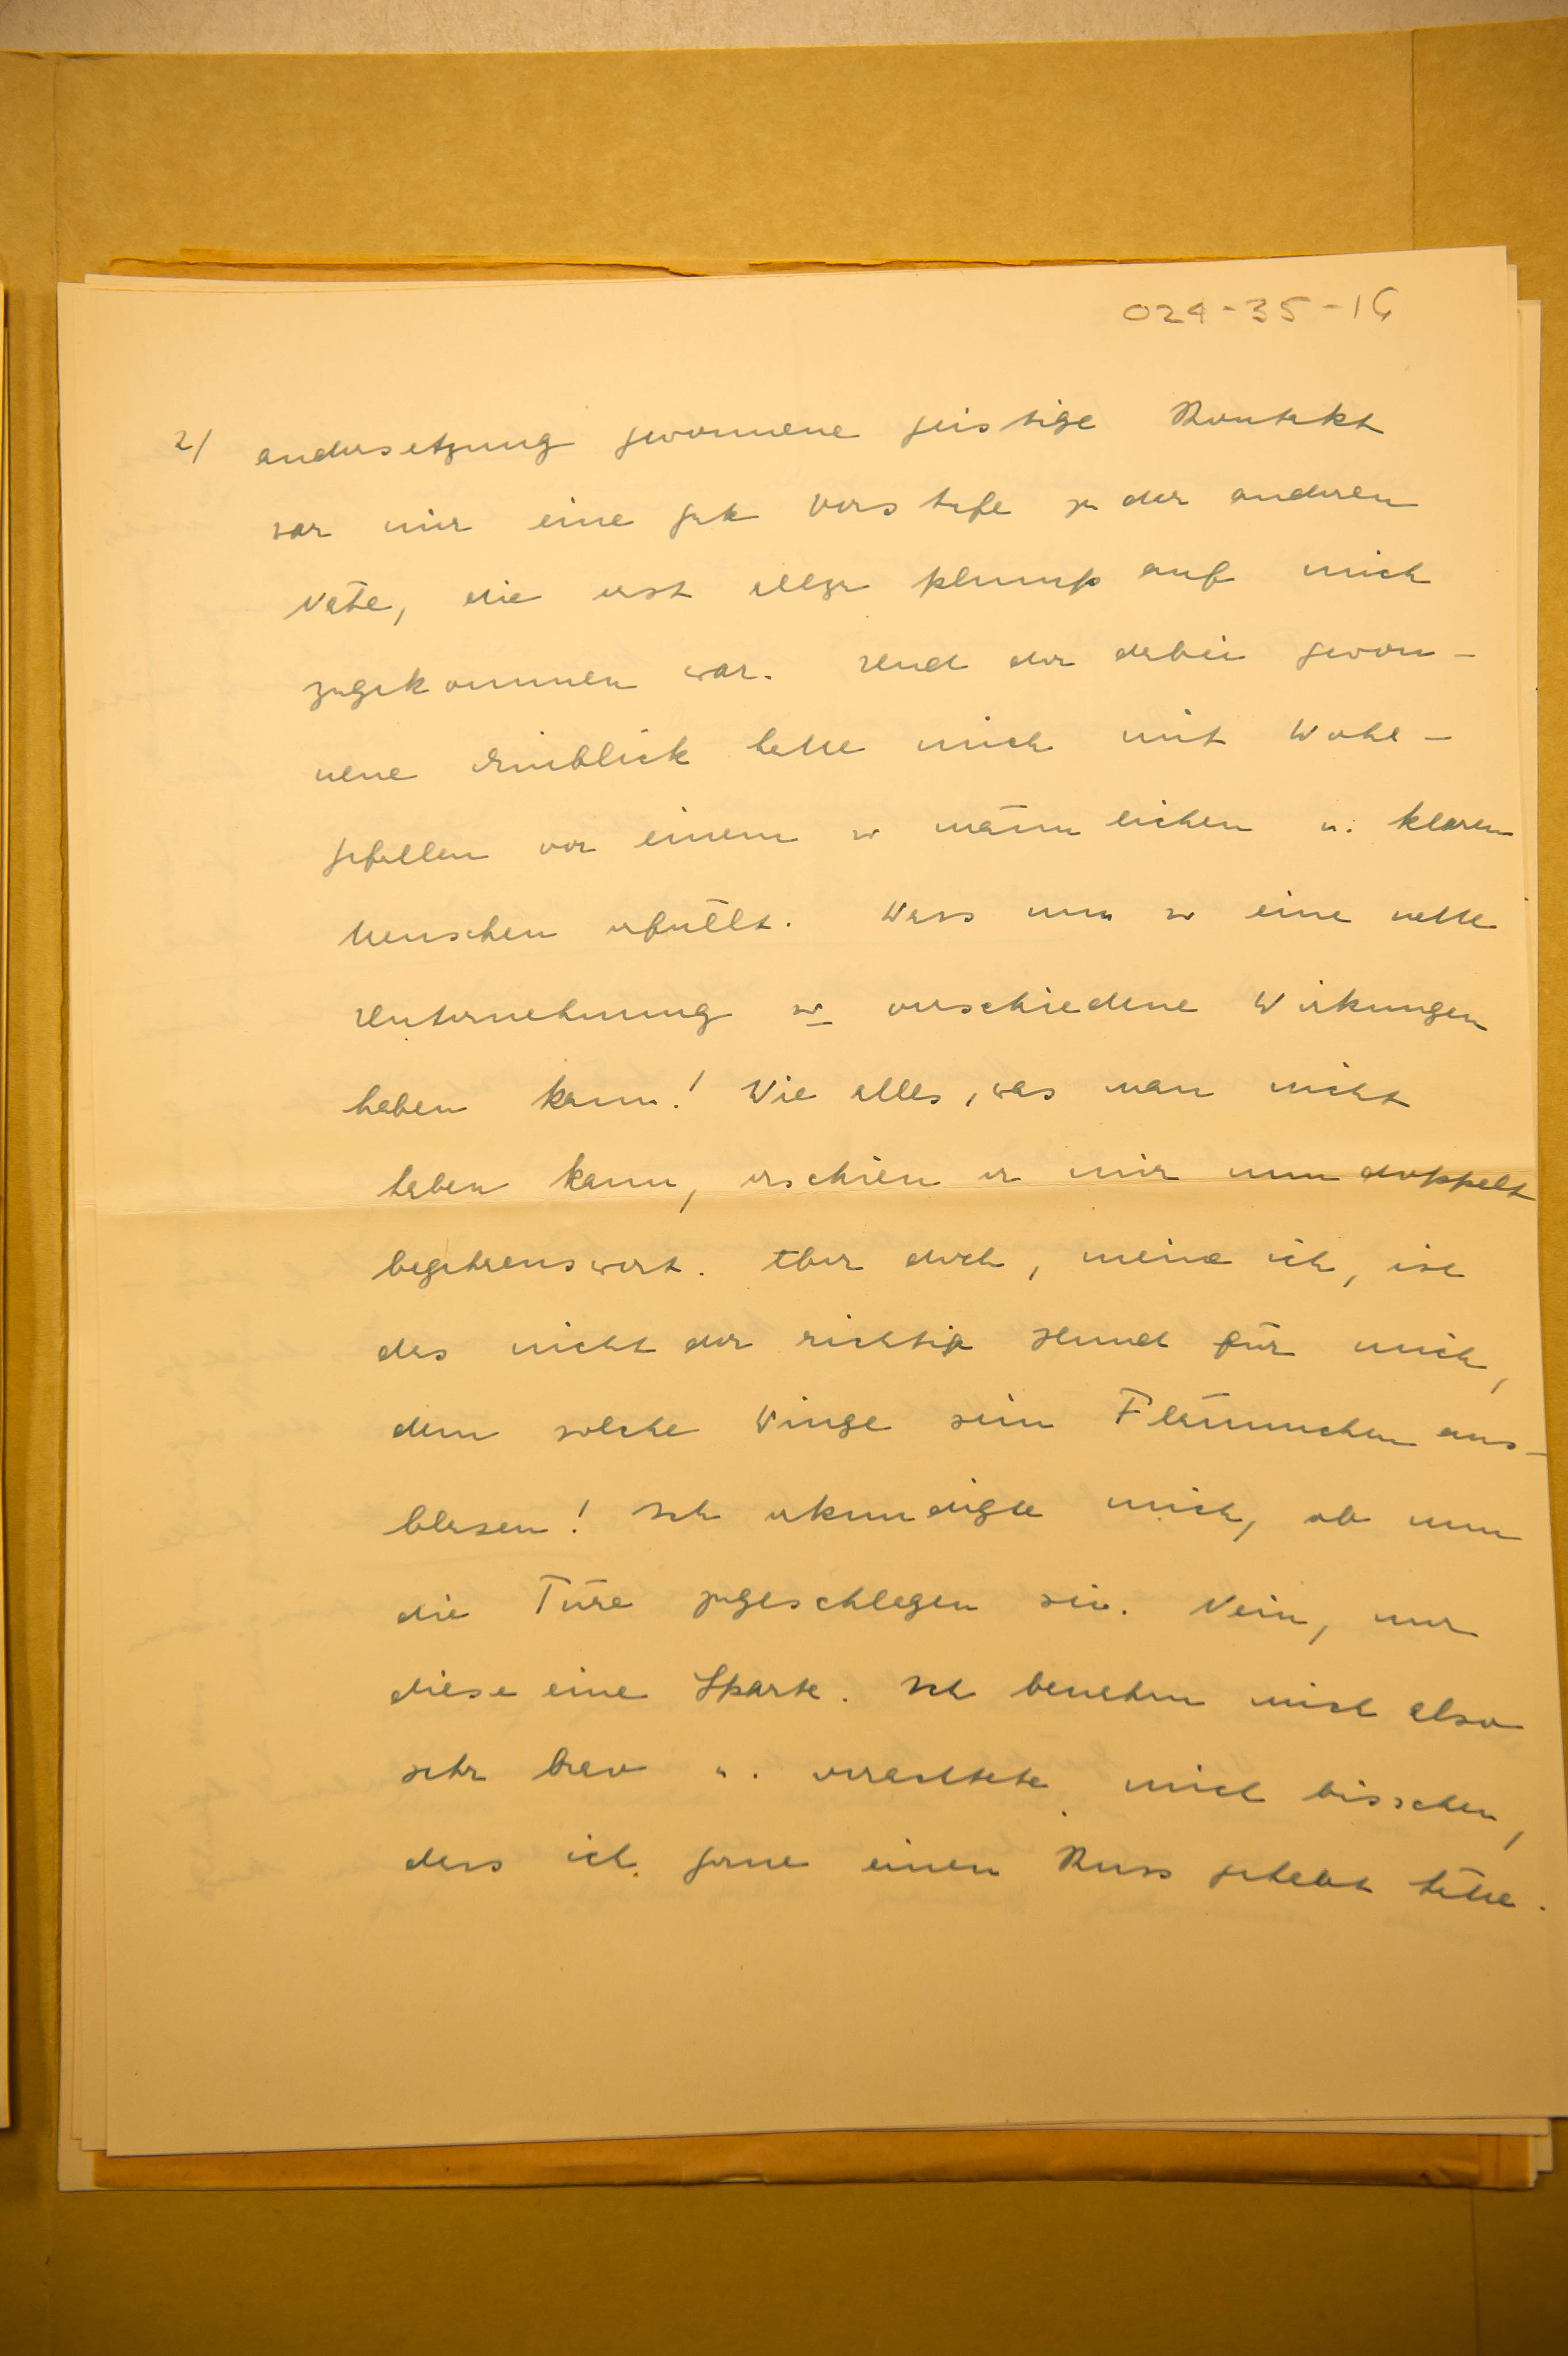 024-35-16
2/ andersetzung gewonnene geistige Kontakt
war mir eine gute Vorstufe zu der anderen
Nähe, die erst allzu plump auf mich
zugekommen war. Und der dabei gewon-
nene Einblick hatte mich mit Wohl-
gefallen vor einem so männlichen u. klaren
Menschen erfüllt. Dass nun so eine nette
Unternehmung so verschiedene Wirkungen
haben kann! Wie alles, was man nicht
haben kann, erschien er mir nun doppelt
begehrenswert. Aber doch, meine ich, ist
das nicht der richtige Hund für mich,
dem solche Dinge sein Flämmchen aus-
blasen! Ich erkundigte mich, ob nun
die Türe zugeschlagen sei. Nein, nur
diese eine Sparte. Ich benehm mich also
sehr brav u. verachtete mich bisschen,
dass ich gerne einen Kuss gehabt hätte.